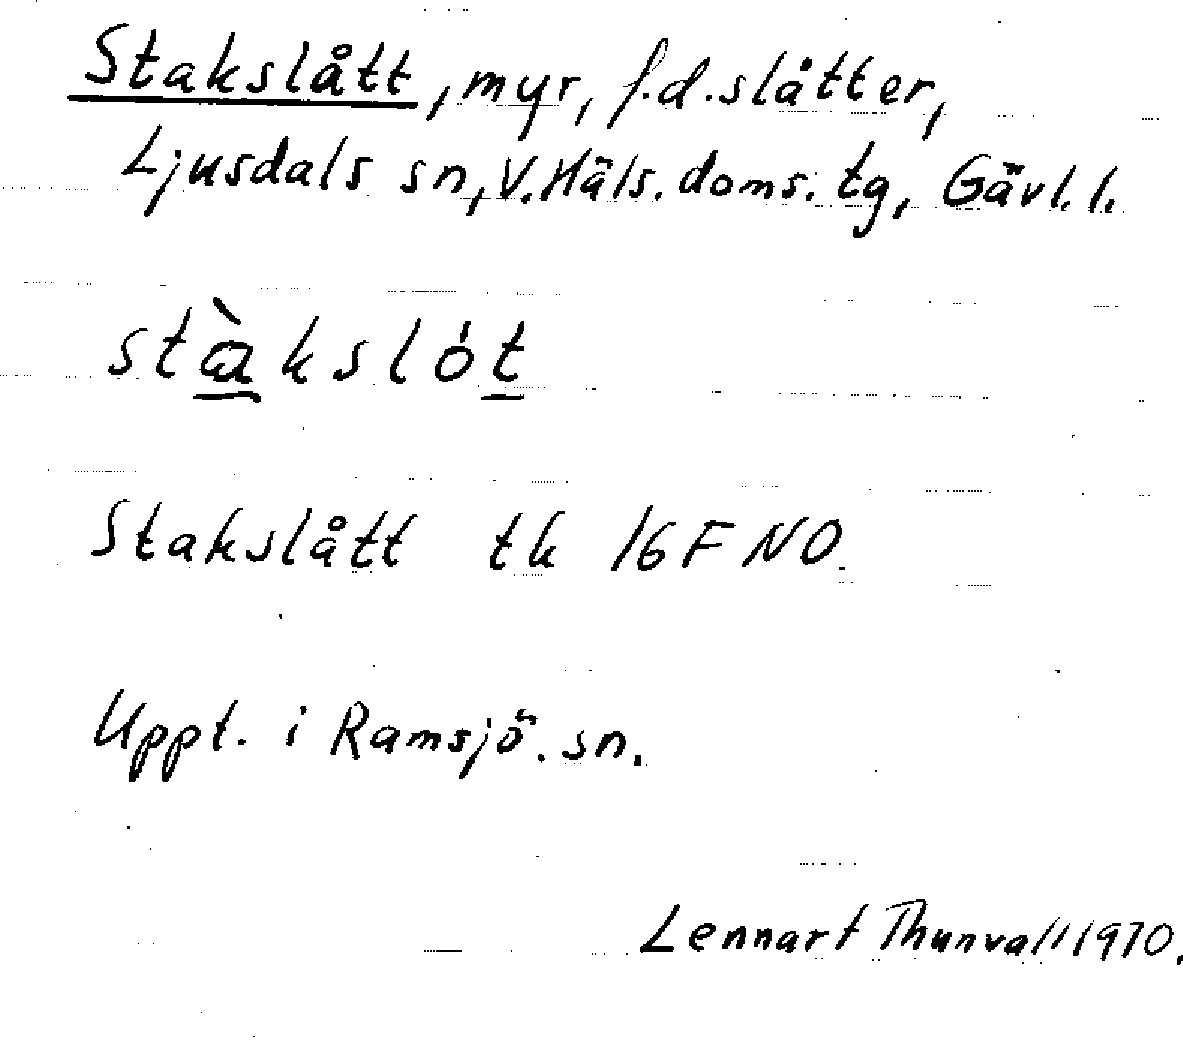 Stakslått, myr, f.d. slåtter,
Ljusdals sn, V. Häls. doms. tg, Gävl. l.
stàkslót
Stakslått tk 16F NO.
Uppt. i Ramsjö. sn.
Lennart Thunvall 1970.